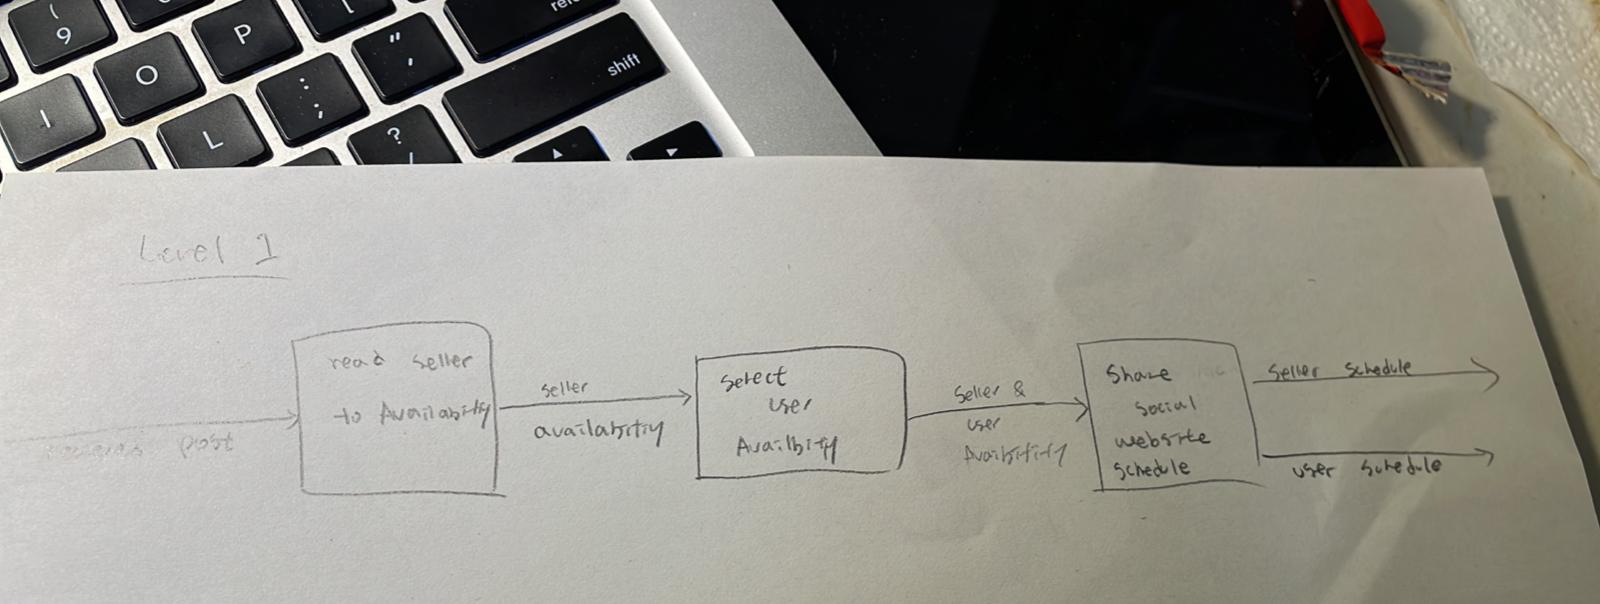 (
9
P
[
O
"
'
:
;
shift
I
L
?
/
Level 1
read seller
to Availability
post
seller
availability
Select
user
Availbity
Seller &
user
Share
social
website
schedule
Seller schedule
user schedule